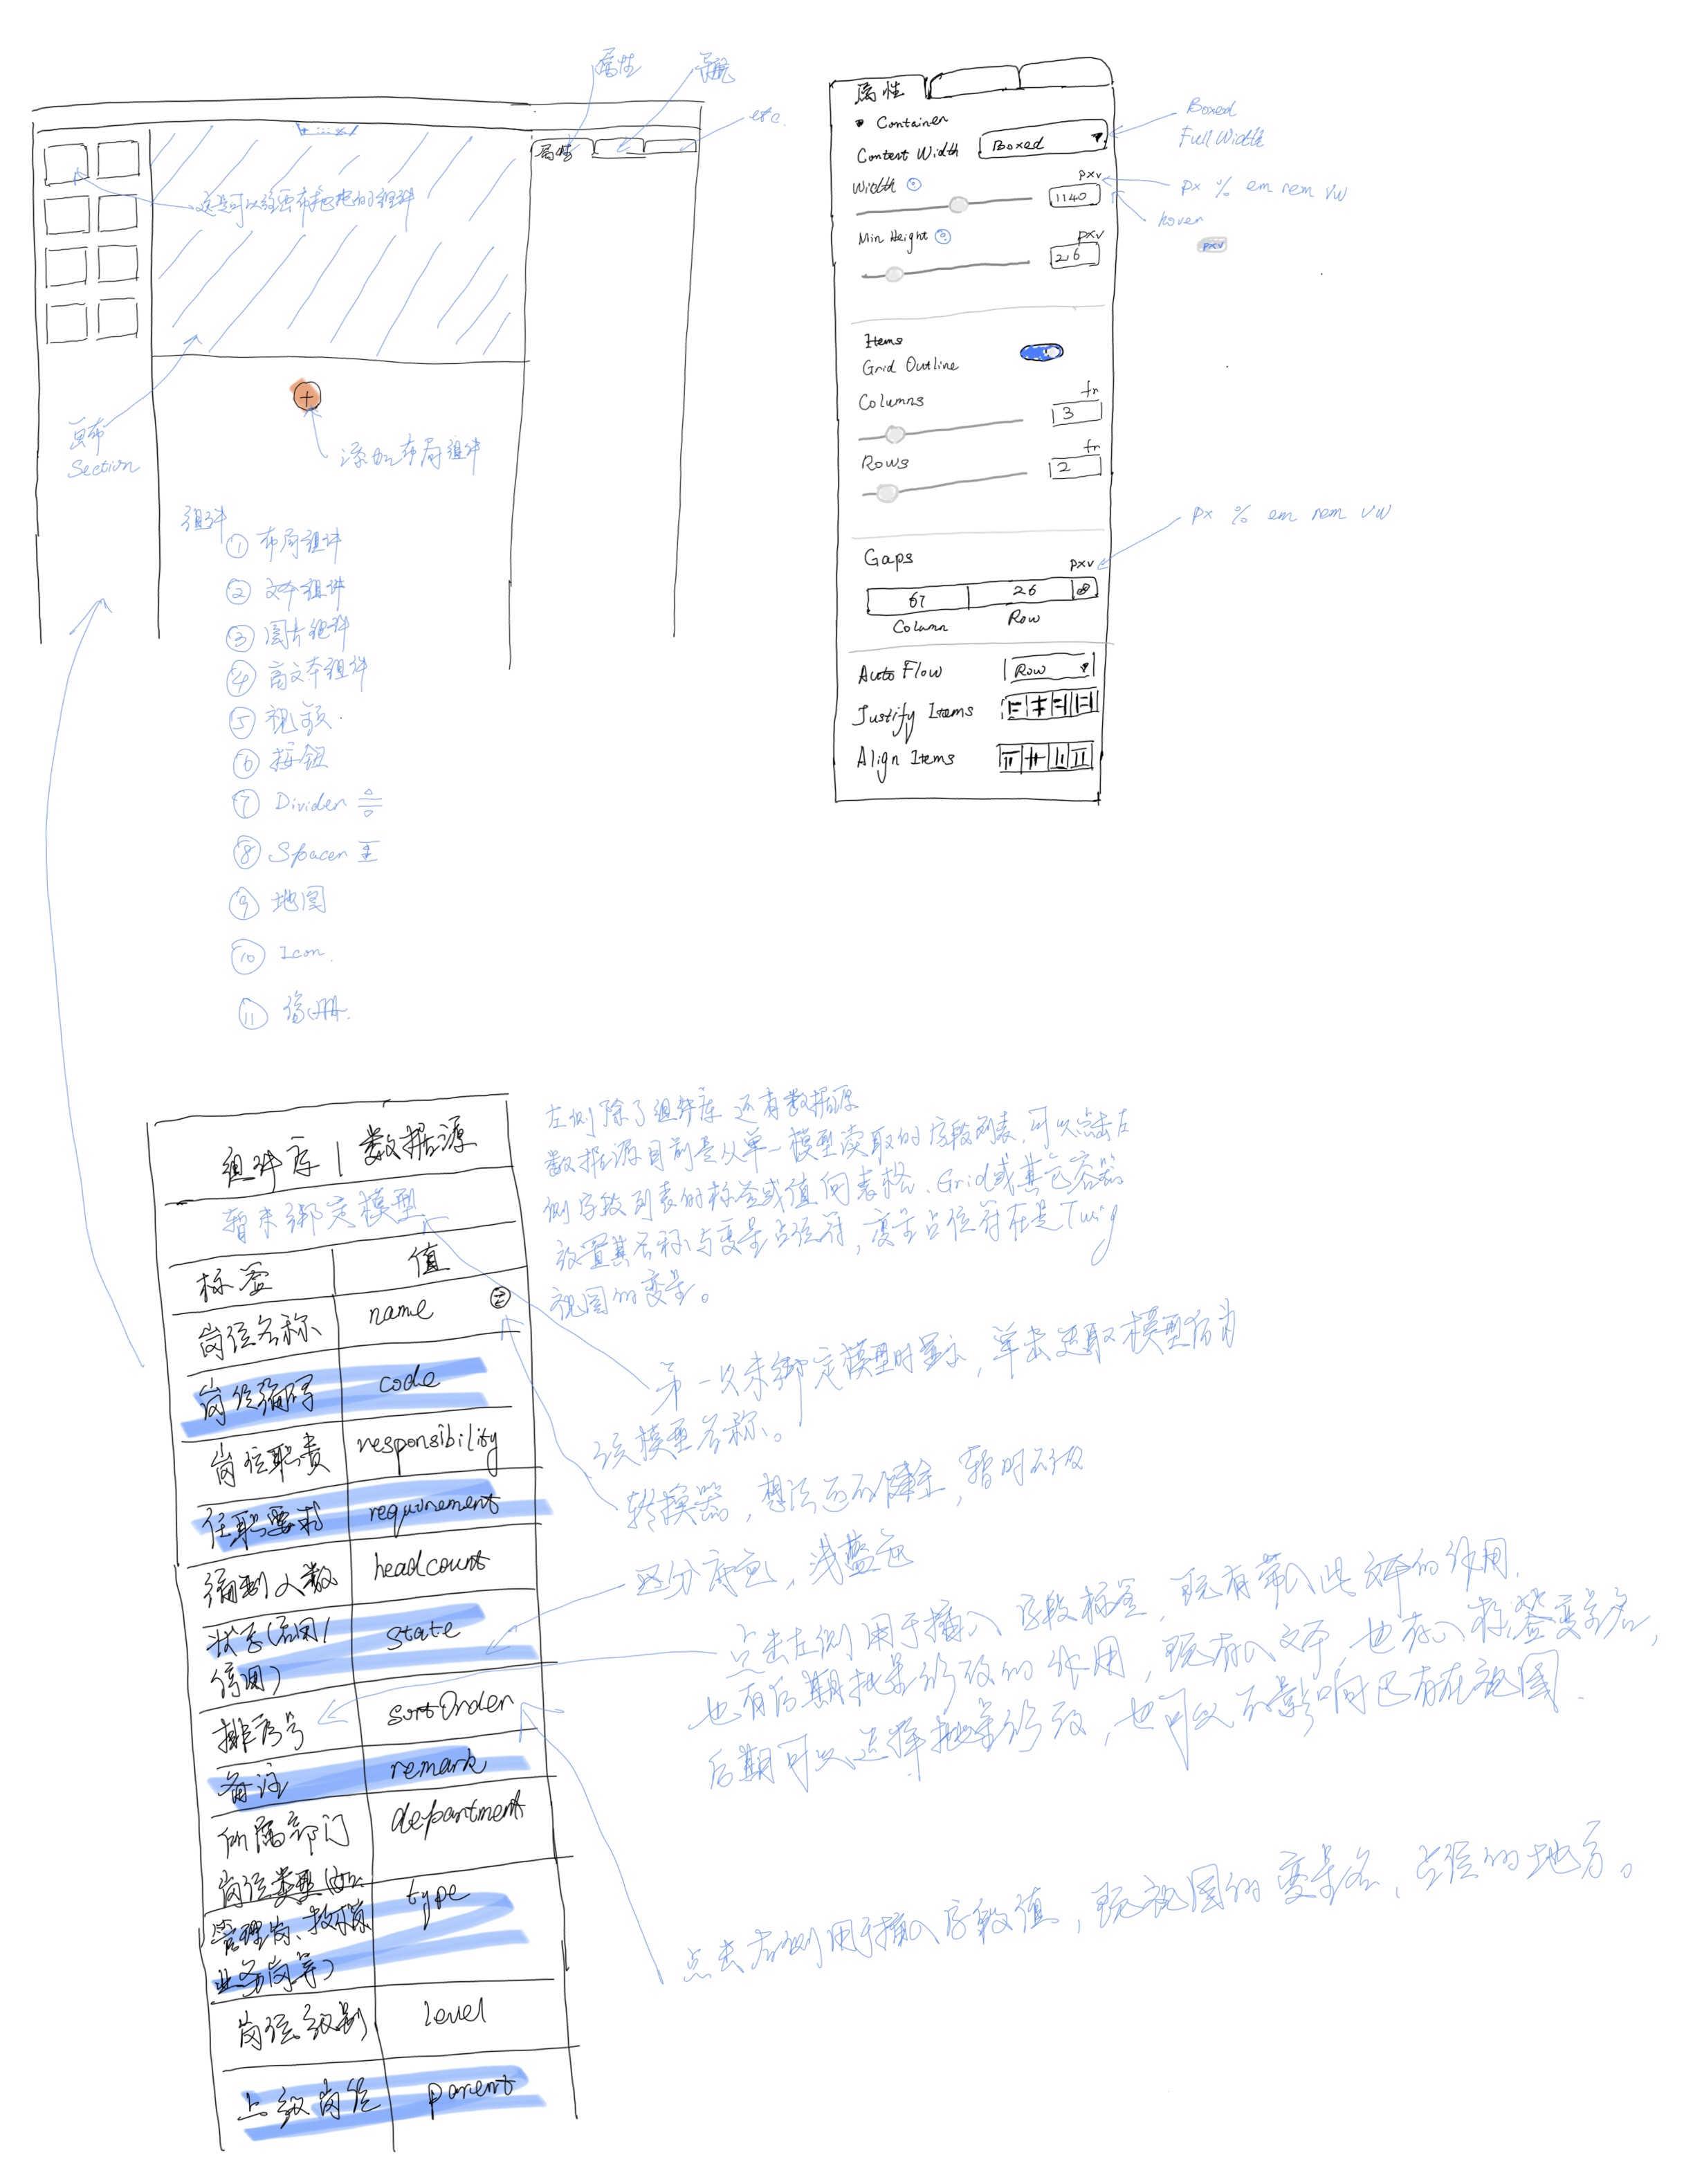 属性
导航
etc.
属性
这是可以往画布拖拽的组件
画布
Section
+
添加布局组件
组件
① 布局组件
② 文本组件
③ 图片组件
④ 富文本组件
⑤ 视频.
⑥ 按钮
⑦ Divider
⑧ Spacer
⑨ 地图
⑩ Icon.
属性
Container
Content Width Boxed
Boxed
Full Width
Width
px
1140
px % em rem vw
hover
px
Min Height
px
26
Items
Grid Outline
Columns
fr
3
Rows
fr
2
Gaps
px
px % em rem vw
67 26
Column Row
Auto Flow Row
Justify Items
Align Items
组件库 | 数据源
暂未绑定模型
标签 值
岗位名称 name
岗位编码 code
岗位职责 responsibility
任职要求 requirement
编制人数 headcount
状态(启用/ state
停用)
排序号 sortOrder
备注 remark
所属部门 department
岗位类型(如: type
管理岗、技术岗
业务岗等)
岗位级别 level
上级岗位 parent
左侧除了组件库 还有数据源
数据源目前是从单一模型读取的字段列表,可以点击左
侧字段列表的标签或值向表格、Grid或其它容器
放置其名称与变量占位符,变量占位符在是Twig
视图的变量。
第一次未绑定模型时显示,单击选取模型后为
该模型名称。
转换器,想法还不健全,暂时不做
区分底色,浅蓝色
点击左侧用于插入字段标签,既有带入此文本的作用.
也有后期批量修改的作用,既存入文本,也存入标签变量名,
后期可以选择批量修改,也可以不影响已存在视图.
点击右侧用于插入字段值,既视图的变量名,占位的地方。